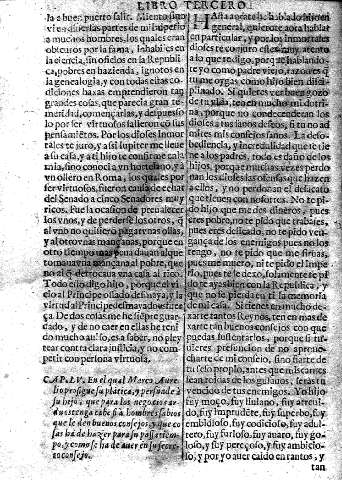 LIBRO TERCERO
la a buen puerto salir. Miento sino
vi en diversas partes de mi Imperio
a muchos hombres, los quales eran
obscuros por la fama, inhabiles en
la ciencia, sin oficios en la Republica,
pobres en hazienda, ignotos en
la genealogia, y con todas estas condiciones
baxas emprendieron tan
grandes cosas, que parecia gran temeridad
començarlas, y despues solo
por ser virtuosos salieron cõ sus
pensamiẽtos. Por los dioses inmortales
te juro, y assi Iupiter me lleve
a su casa, y a ti hijo te confirme en la
mia, sino conocia vn hortelano, y a
vn ollero en Roma, los quales por
ser virtuosos, fueron causa de echar
del Senado a cinco Senadores muy
ricos. Fue la ocasion de prevalecer
los vnos, y de perderse los otros, q̃
al vno no quisiero pagar vnas ollas,
y al otro vnas mançanas, porque en
otro tiempo mas pena davan al que
tomava vna mançana al pobre, que
no al q̃ derrocava vna casa al rico.
Todo esto digo hijo, porque el vicio
al Principe osado desmaya, y la
virtud al Principe desmayado esfuerça.
De dos cosas me he siẽpre guardado,
y de no caer en ellas he tenido
mucho aviso, es a saber, no pleytear
contra clara justicia, y no competir
con persona virtuosa.
CAP. LV. En el qual Marco Aurelio
prosigue su platica, y persuade à
su hijo: que para los negocios arduos
tenga cabe si à hombres sabios
que le den buenos consejos, y que cosas
ha de hazer para su passatiempo,
y como se ha de aver en su secreto
consejo.
Hasta agora he hablado hijo en
general, quiero te aora hablar
en particular, y por los inmortales
dioses te conjuro estes muy atento
a lo que te digo, porque te hablando
te yo como padre viejo, razon es q̃
me oygas como hijo bien disciplinado.
Si quieres ver buen gozo
de tu vida, ten en mucho mi dotrina,
porque no condescenderan los
dioses a tus sanos desseos, si tu no admites
mis consejos sanos. La desobediencia,
y incredulidad que tiene
ne a los padres, todo es daño de los
hijos, porque muchas vezes perdonan
los dioses las ofensas que hazen
a ellos, y no perdonan el desacato
que tienen con nosotros. No te pido
hijo que me des dineros, pues
eres pobre, no te pido que trabajes,
pues eres delicado, no te pido vengança
de los enemigos pues no los
tengo, no te pido que me sirvas,
pues me muero, ni te pido el Imperio,
pues te le dexo, solamente te pido
te ayas bien en la Republica, y
que no se pierda en ti la memoria
de mi casa. Si tienes en mucho dexarte
tantos Reynos, ten en mas dexarte
tan buenos consejos con que
puedas sustentarlos, porque si tuvieres
presuncion de no aprovecharte
de mi consejo, sino fiarte de
tu seso propio, antes que mis carnes
sean roidas de los gusanos, seràs tu
vencido de tus enemigos. Yo hijo
fuy moço, fuy liuiano, fuy atrevido,
fuy imprudẽte, fuy superbo, fuy
embidioso, fuy codicioso, fuy adultero,
fuy furioso, fuy avaro, fuy goloso,
y fuy perezoso, y fuy ambicioso,
y por yo aver caido en tantos, y
tan